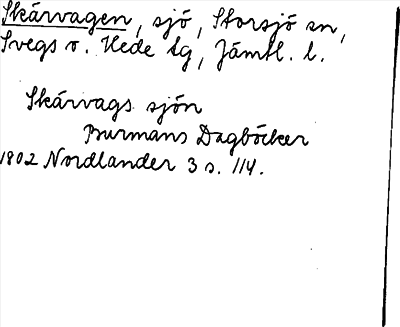 Skärvagen, sjö, Storsjö sn,
Svegs o. Hede tg, Jämtl. l.
Skärvags sjön
Burmans Dagböcker
1802 Nordlander 3 s. 114.